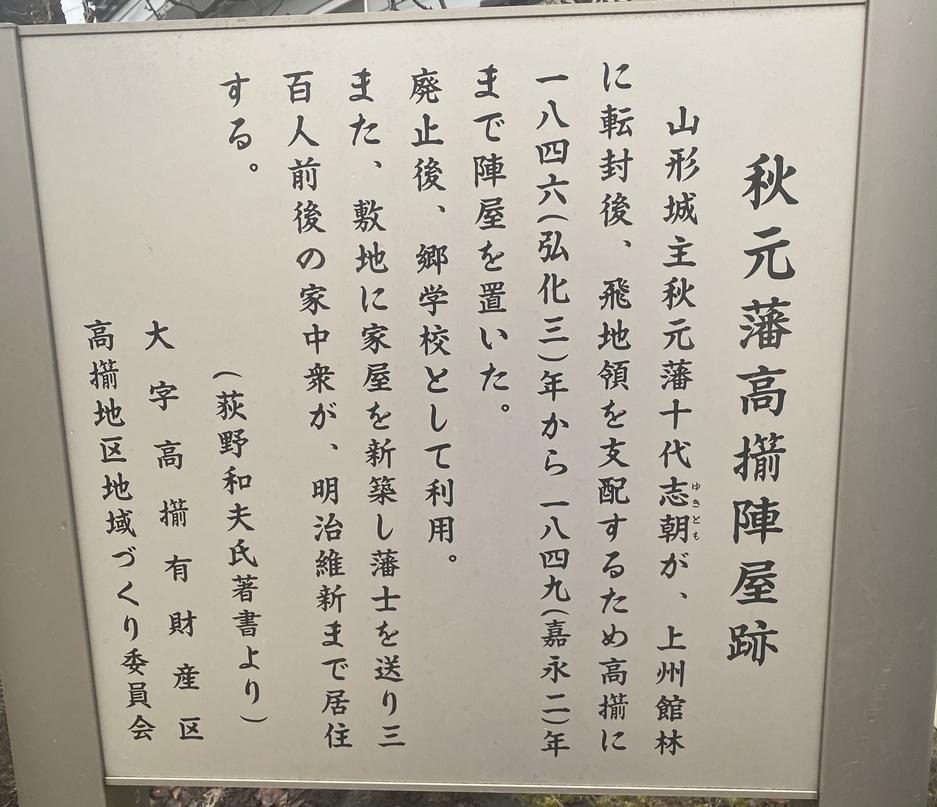 秋元藩高擶陣屋跡
山形城主秋元藩十代志朝が、上州館林
ゆきとも
に転封後、飛地領を支配するため高擶に
一八四六(弘化三)年から一八四九(嘉永二)年
まで陣屋を置いた。
廃止後、郷学校として利用。
また、敷地に家屋を新築し藩士を送り三
百人前後の家中衆が、明治維新まで居住
する。
(荻野和夫氏著書より)
大字高擶有財産区
高擶地区地域づくり委員会